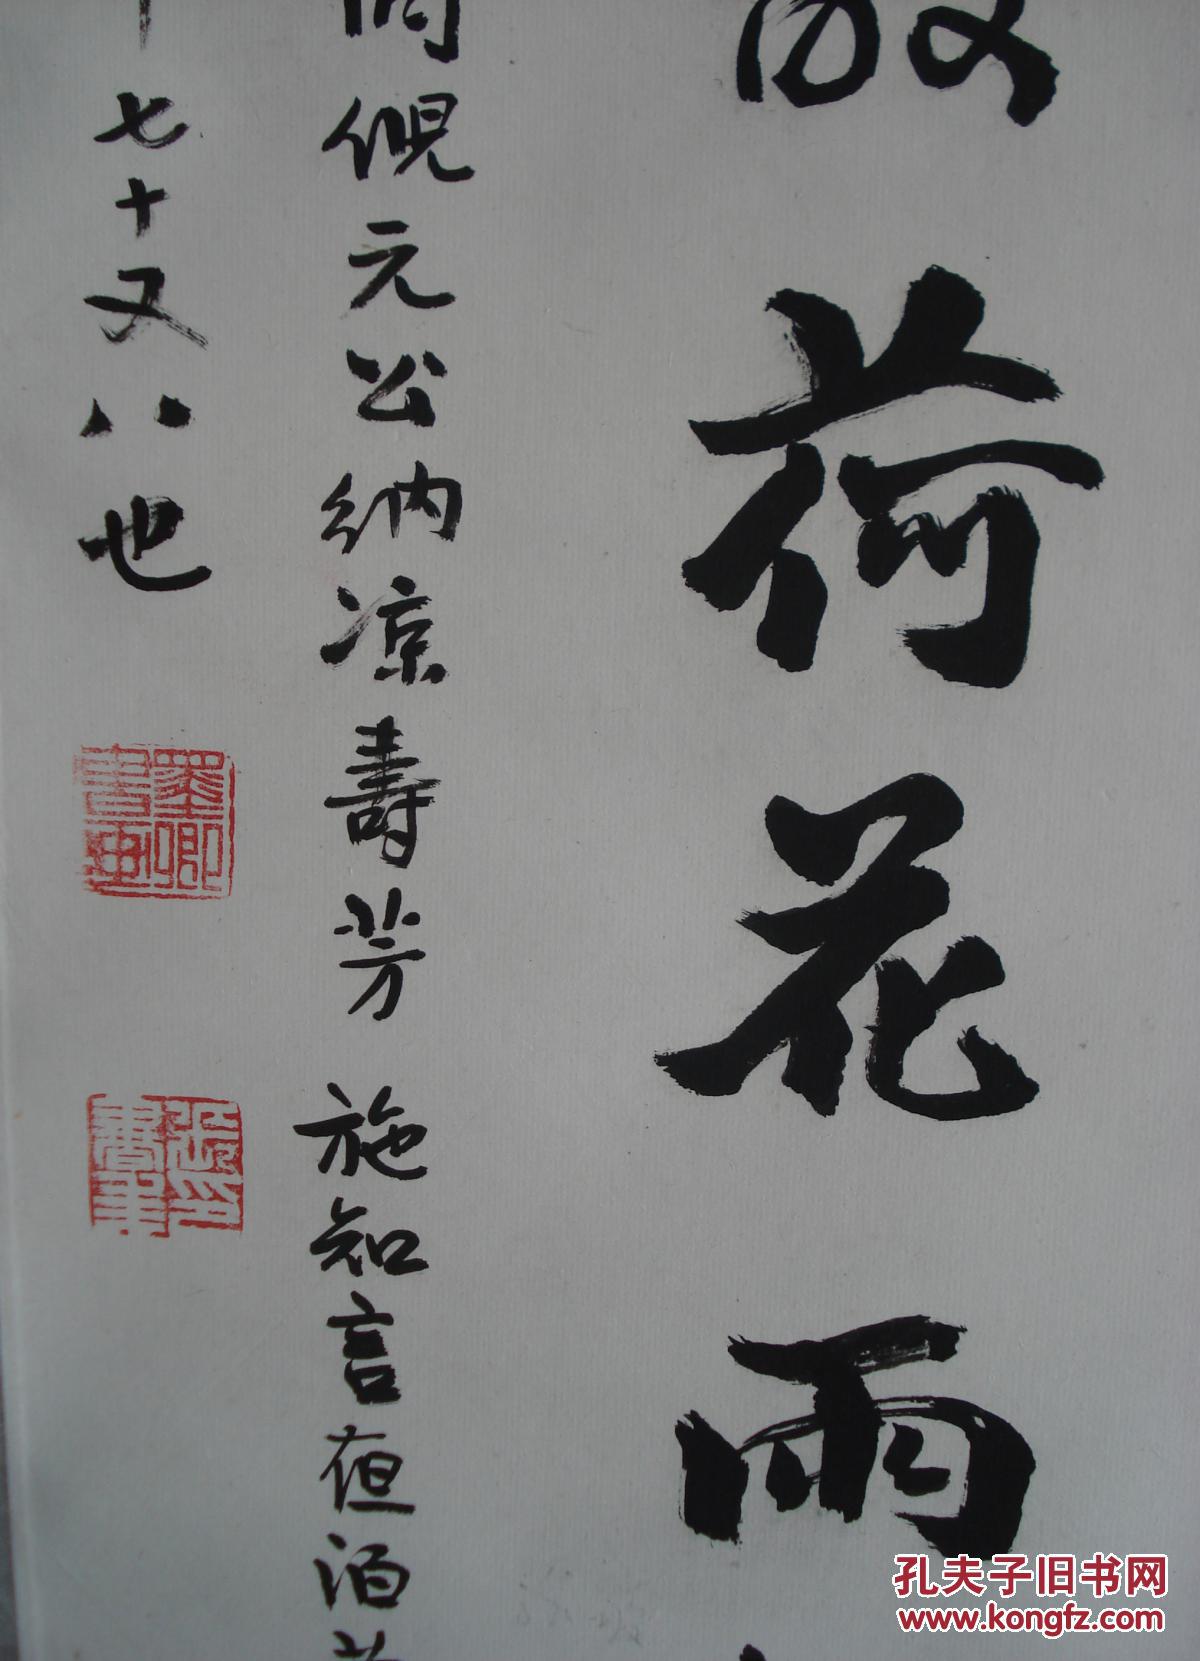 放荷花雨
倪元公纳凉壽芳 施知言夜泊
七十又八也
墨卿書画
孔夫子旧书网
www.kongfz.com